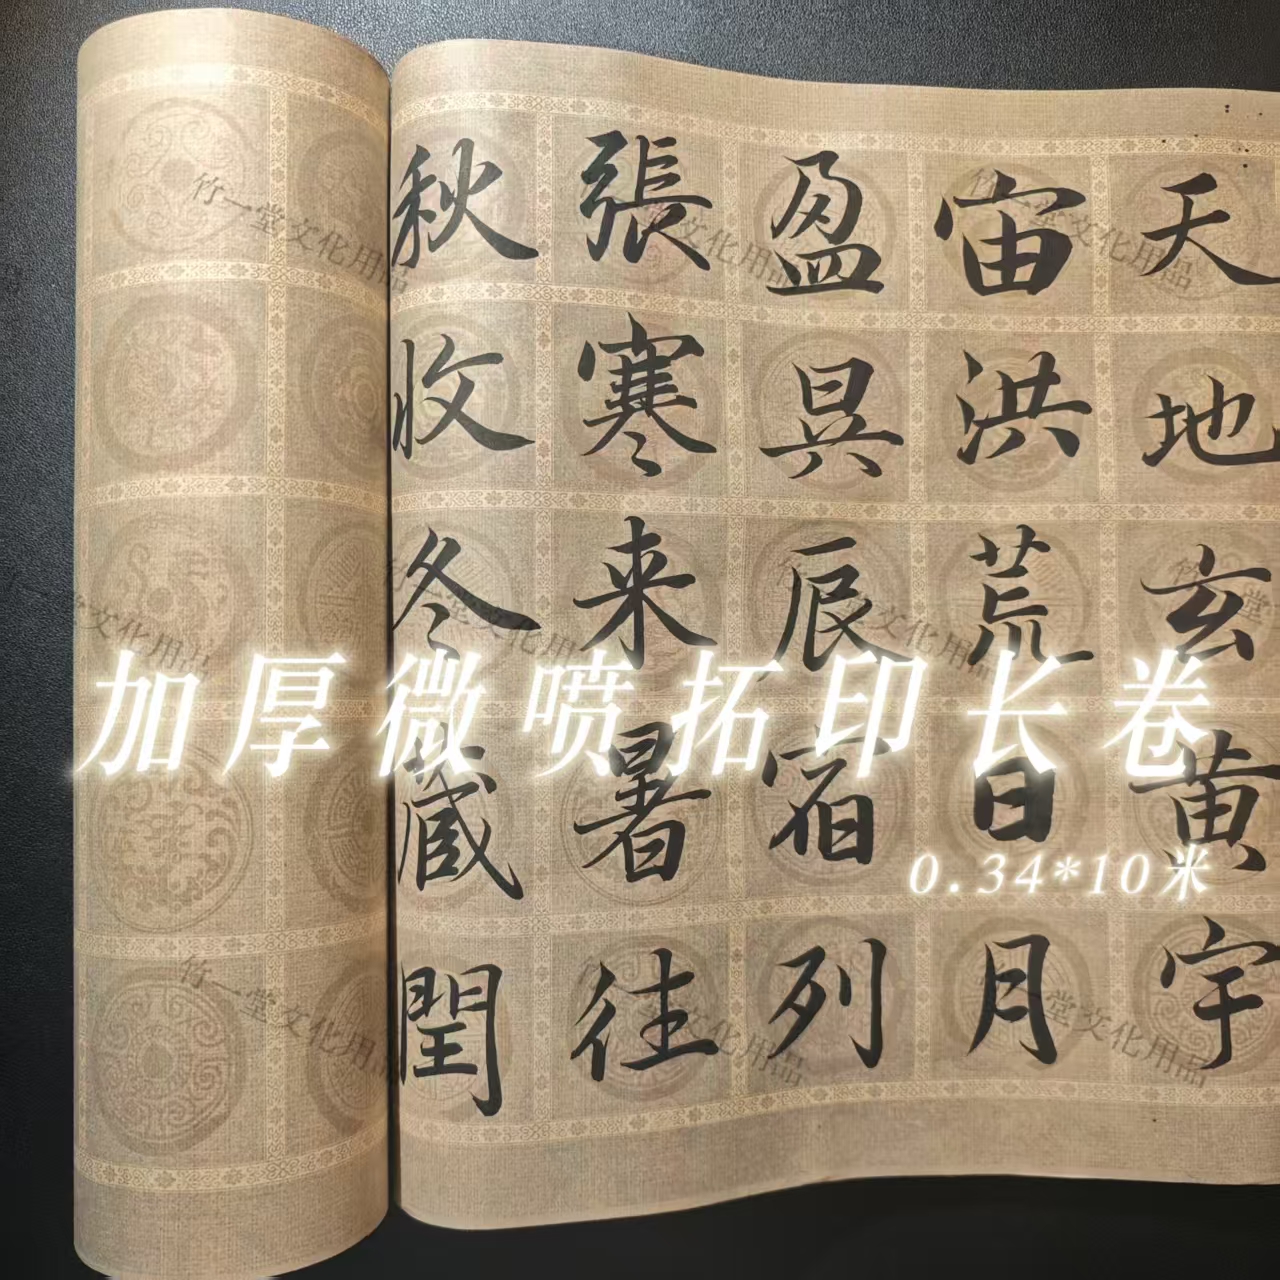 天地玄黄宇
宙洪荒日月
盈昃辰宿列
張寒来暑往
秋收冬蔵閏
加厚微喷拓印长卷
0.34*10米
竹一堂文化用品
竹一堂文化用品
竹一堂文化用品